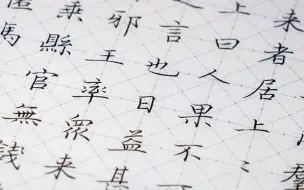 未者居上ミ
上曰人果不
言也日益甚
邪王率衆来
乗縣官無錢
馬